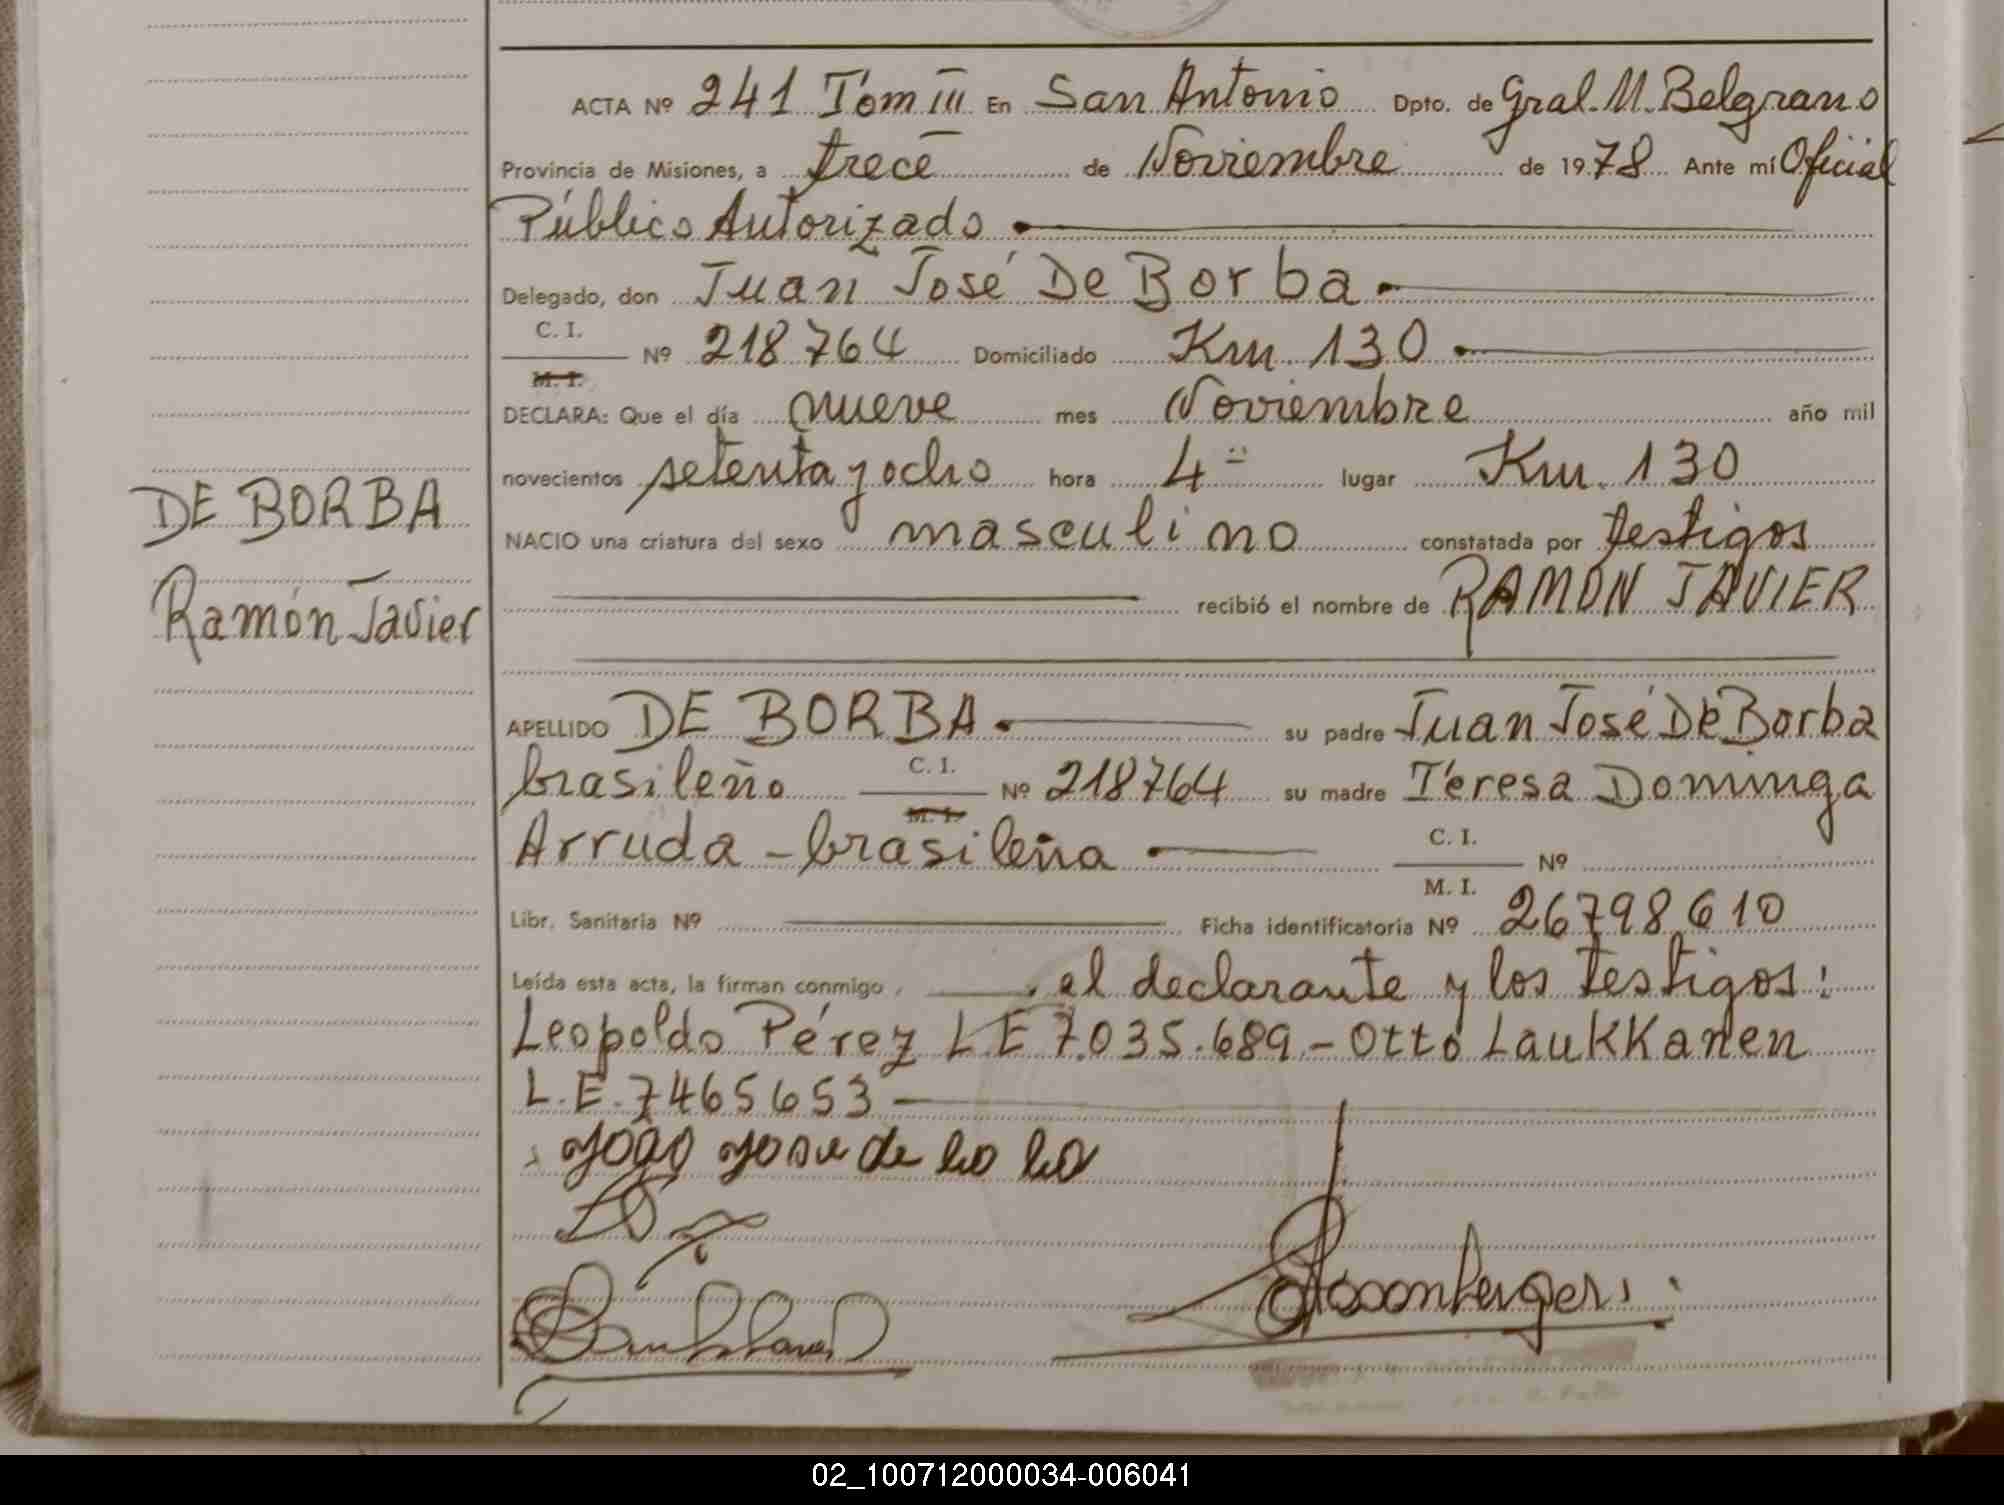 ACTA Nº 241 Tom III En San Antonio Dpto. de Gral. M. Belgrano
Provincia de Misiones, a trece de Noviembre de 1978 Ante mí Oficial
Público Autorizado
Delegado, don Juan José De Borba
C. I.
Nº 218764 Domiciliado Km. 130
M. I.
DECLARA: Que el día nueve mes Noviembre año mil
novecientos setenta y ocho hora 4 lugar Km. 130
DE BORBA
NACIO una criatura del sexo masculino constatada por testigos
Ramón Javier
recibió el nombre de RAMON JAVIER
APELLIDO DE BORBA su padre Juan José De Borba
brasileño C. I. Nº 218764 su madre Teresa Dominga
M. I.
Arruda - brasileña C. I. Nº
M. I.
Libr. Sanitaria Nº Ficha identificatoria Nº 26798610
Leída esta acta, la firman conmigo, el declarante y los testigos:
Leopoldo Pérez L.E 7.035.689 - Otto Laukkanen
L.E. 7465653
João José de
02_100712000034-006041